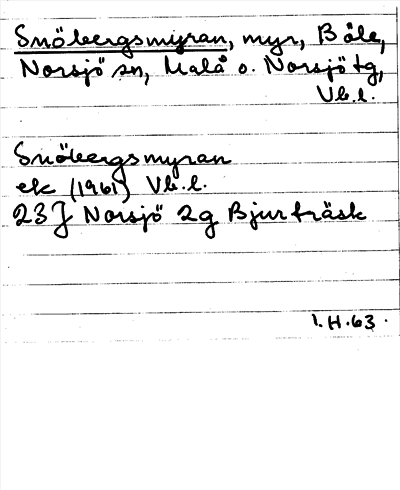 Snöbergsmyran, myr, B åle,
Norsjö sn, Malå o. Norsjö tg,
Vb.l.
Snöbergsmyran
ek (1961) Vb.l.
23J Norsjö 2g Bjurträsk
I.H.63.